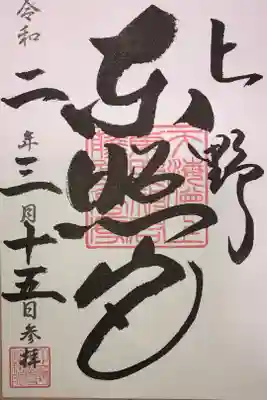 上野
東照宮
令和
二年三月十五日参拝